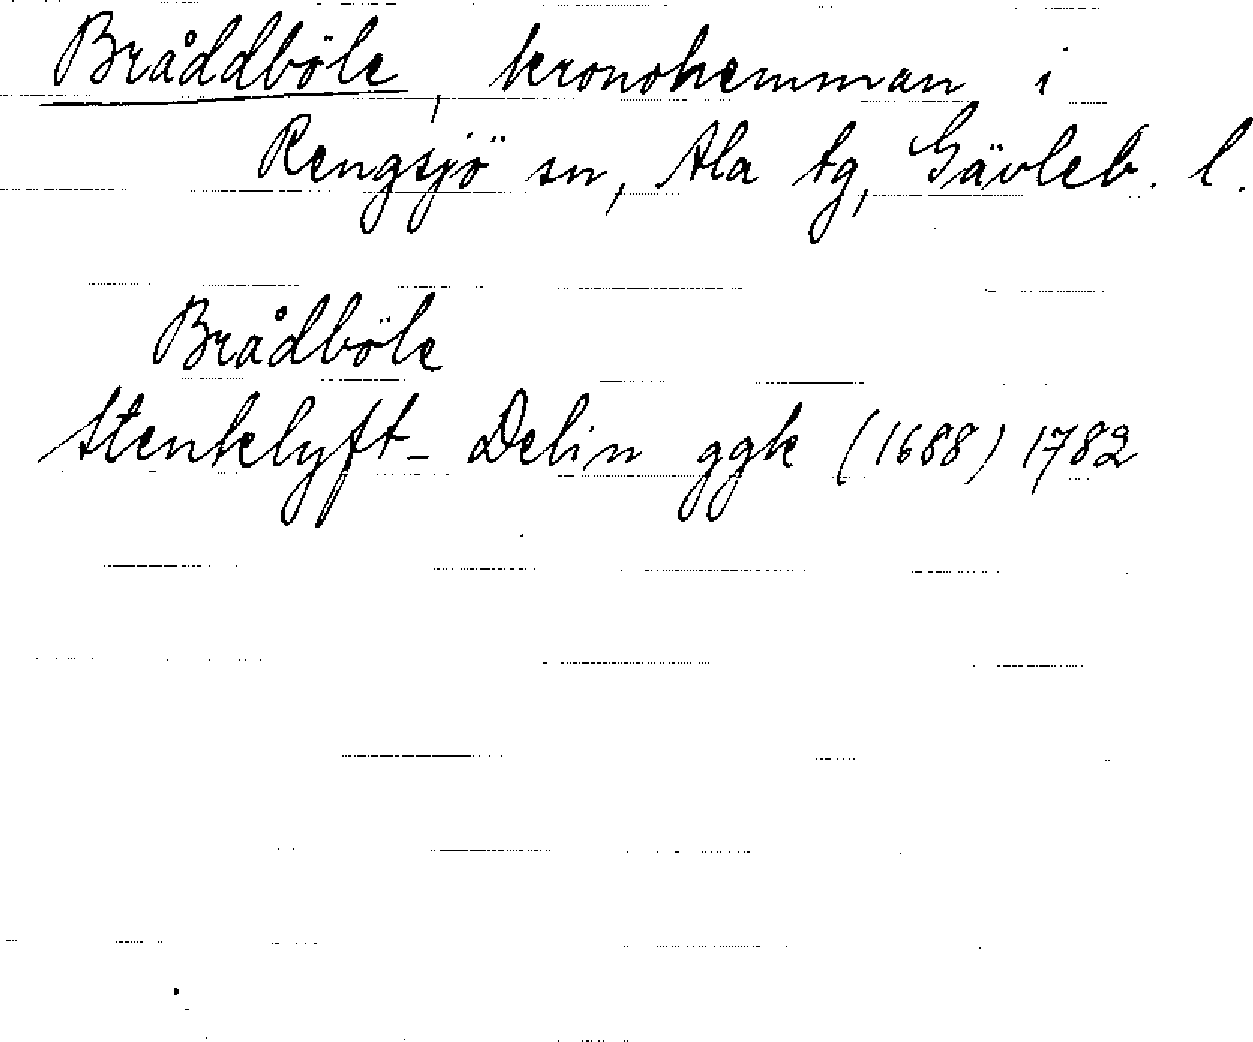 Bråddböle, kronohemman i
Rengsjö sn, Ala tg, Gävleb. l.
Brådböle
Stenklyft- Delin ggk (1688) 1782